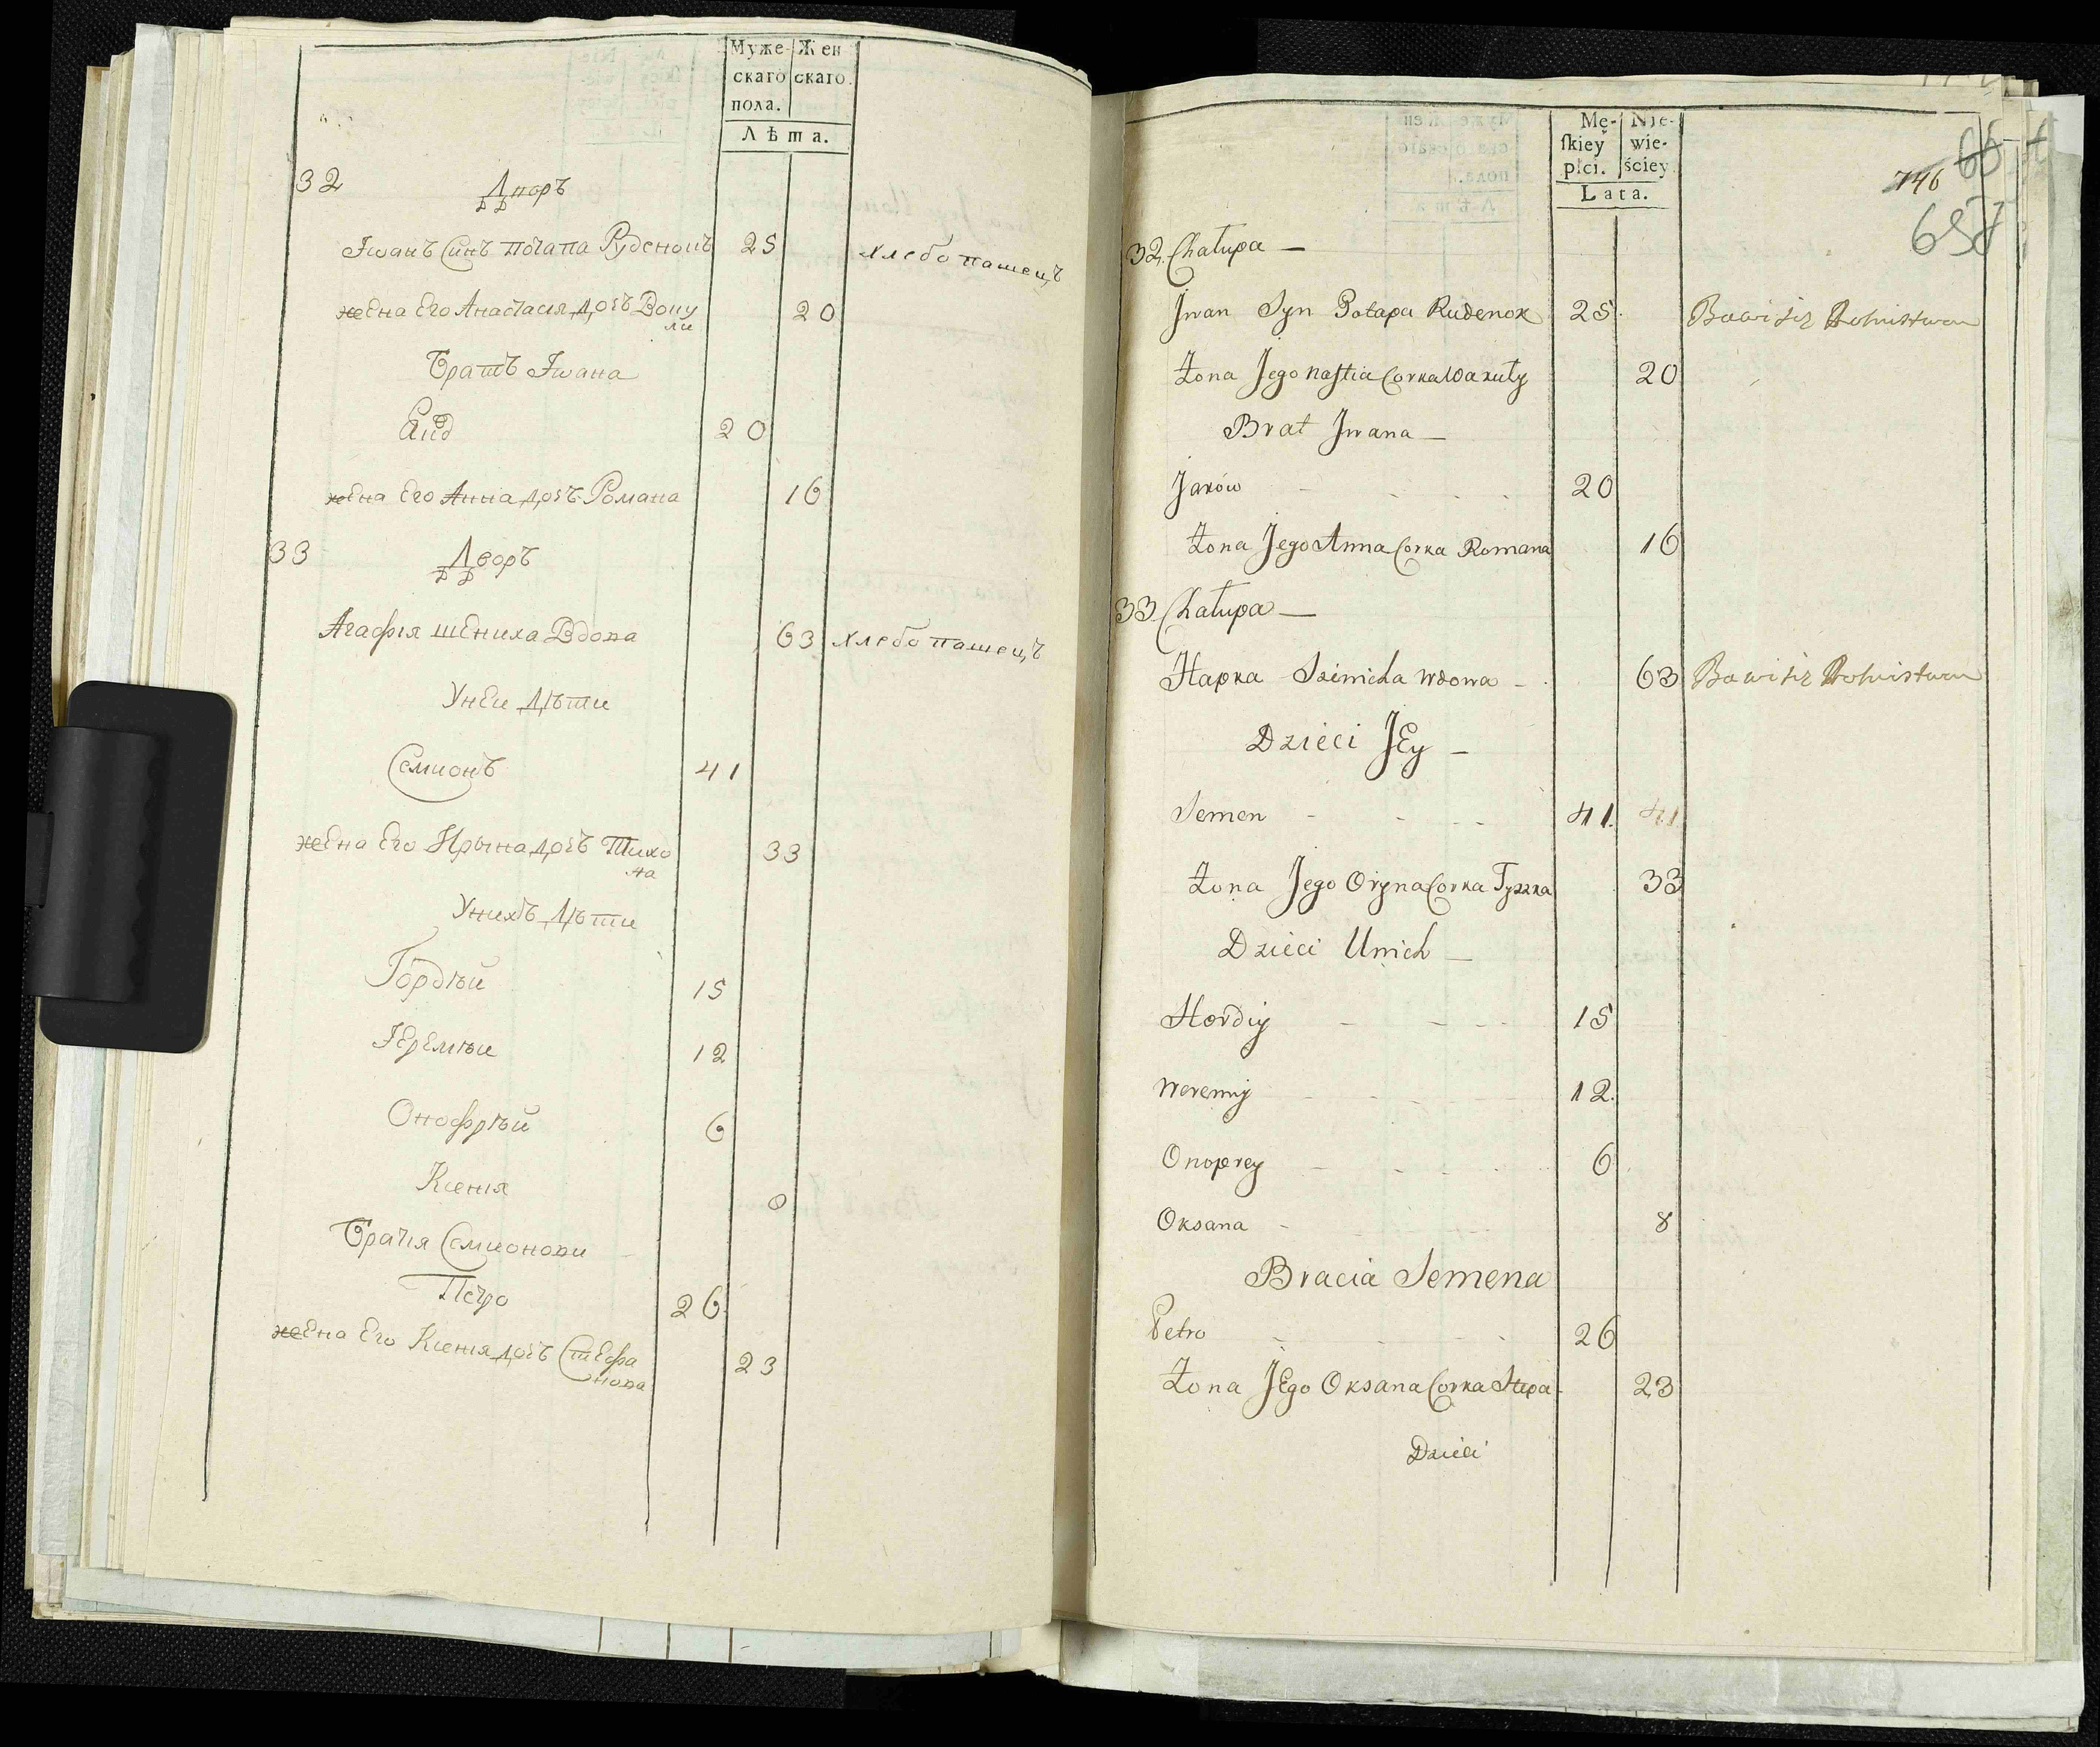 Муже-
скаго
пола.
Жен
скаго.
Лѣта.
32
Дворъ
Іванъ Синъ потапа Руденокъ 25 хлебопашецъ
жена Его Анастасия дочъ Вону
ли 20
Братъ Ивана
20
жена Его Анна дочъ Романа 16
33
Дворъ
Агафия шениха Вдова 63 хлебопашецъ
У неи дѣти
Семионъ 41
жена Его Ирына дочъ Тихо
на 33
У нихъ дѣти
Гордѣй 15
Іеремѣи 12
Онофрѣй 6
Ксения 8
Братия Семионови
Петро 26
жена Его Ксения дочъ Стефа
нова 23
Mę-
ſkiey
płci.
Nie-
wie-
ściey
Lata.
746
66
657
32. Chałupa —
Jwan Syn Potapa Rudenok 25. Bawi się Rolnistwem
Żona Jego Nastia Corka Wakuły 20
Brat Jwana —
Jaków 20
Żona Jego Anna Corka Romana 16
33. Chałupa —
Hapka Szenicha wdowa 63 Bawi się Rolnistwem
Dzieci JEy —
Semen 41. 41
Żona Jego Oryna Corka Tyszka 33
Dzieci Unich —
Hordiy 15
Weremiy 12.
Onoprey 6
Oksana 8
Bracia Semena
Petro 26
Żona JEgo Oksana Corka Stepa- 23
Dzieci